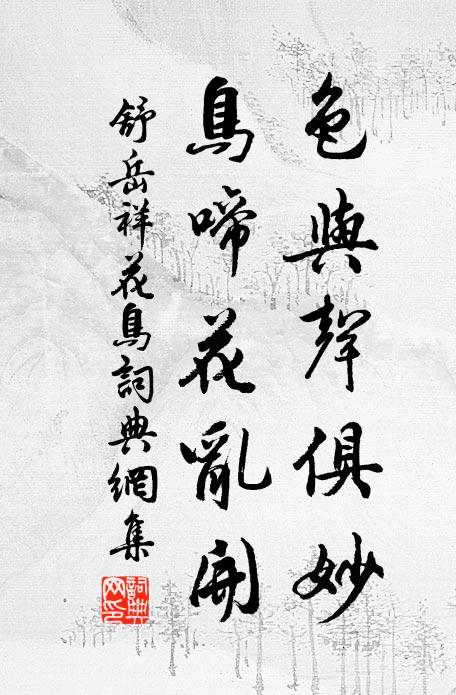 色與聲俱妙
鳥啼花亂開
舒岳祥花鳥詞典網集
詞典網印